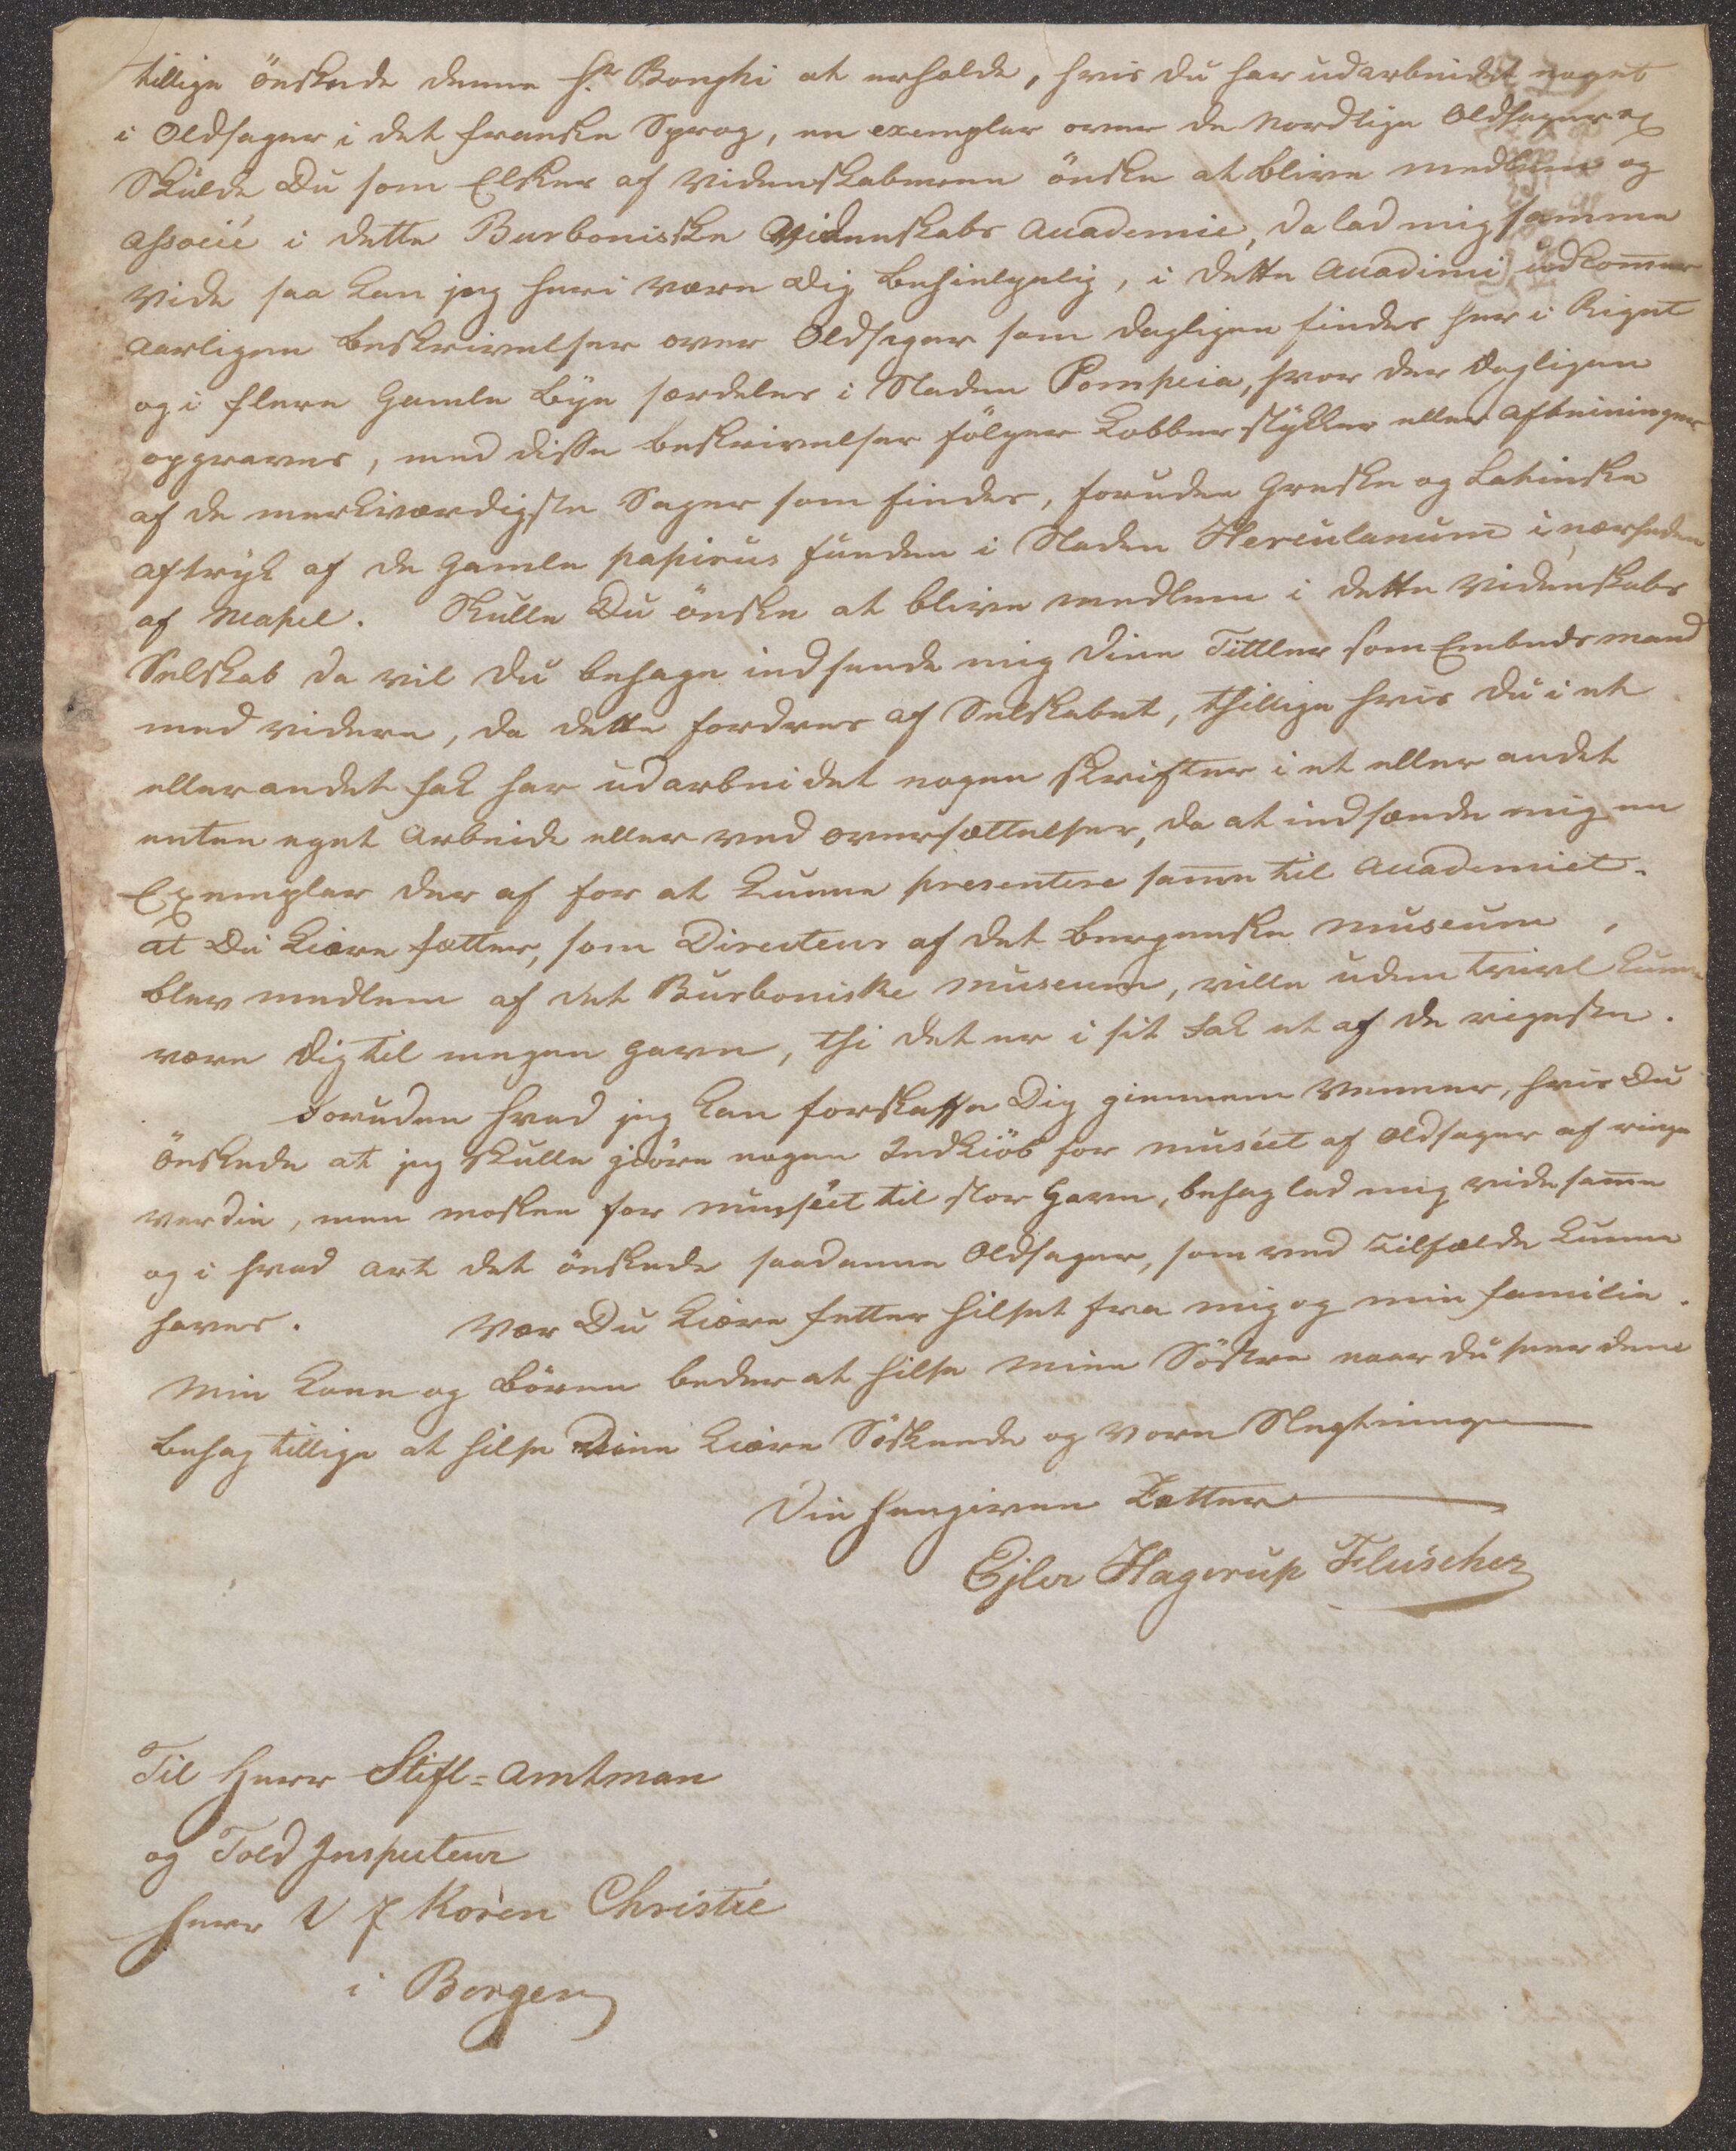 tillige önskede denne Hr Bonghi at erholde, hvis du har udarbeidet noget
i Oldsager i det franske Sprog, en exemplar over de Nordlige Oldsager
Skulde Du som Elsker af Videnskaberne önske at blive medlem og
associé i dette Burboniske Videnskabs Academie, da lad mig samme
vide saa kan jeg heri være dig behielpelig, i dette Academi udkommer
aarligen beskrivelser over Oldsager som dagligen findes her i Riget
og i flere Gamle Bye særdeles i Staden Pompeia, hvor der dagligen
opgraves, med disse beskrivelser fölger Kobberstÿkker eller aftegninger
af de merkværdigste Sager som findes, foruden Greske og Latinske
aftryk af de Gamle papirus funden i Staden Herculanum i nærheden
af Neapel. Skulle Du önske at blive medlem i dette Videnskabs
Selskab da vil du behage indsende mig dine Tittler som Embedsmand
med videre, da dette fordres af Selskabet, thillige hvis du i et
eller andet fak har udarbeidet nogen skrifter i et eller andet
enten eget arbeide eller ved oversættelser, da at indsænde mig en
Exemplar der af for at kunne presentere same til Academiet.
at Du kiære fætter, som Directeur af det bergenske museum,
blev medlem af det Burboniske museum, ville uden tvivl kunne
være dig til megen gavn, thi det er i sit Fak et af de rigeste.
Foruden hvad jeg kan forskaffe Dig giennem Venner, hvis Du
önskede at jeg skulle giöre nogen Indkiöb for muséet af Oldsager af ringe
verdie, men moskee for muséet til stor Gavn, behag lad mig vide same
og i hvad art det önskede saadanne Oldsager, som ved Tilfælde kunne
haves. Vær Du kiære fetter hilset fra mig og min familie.
Min kone og börn beder at hilse mine Söstre naar du seer dem
behag tillige at hilse Dine kiære Söskende og vore Slegtninge
Din hengivene Fætter
Ejler Hagerup Fleischer
Til Herr Stift=amtman
og Told Inspecteur
Herr W F Koren Christie
i Bergen